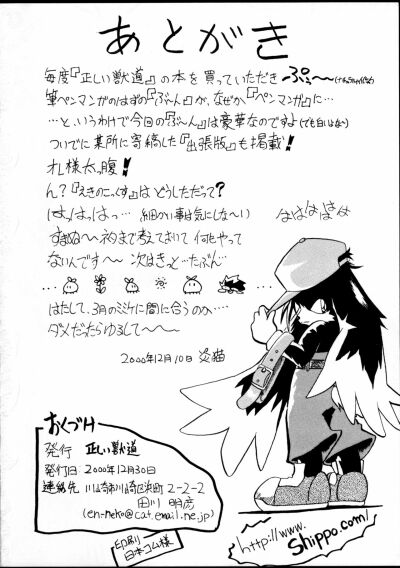 あとがき
毎度『正しい獣道』の本を買っていただき
筆ペンマンガのはずの『ぶ〜ん』が、なぜか『ペンマンガ』に…
…と、いうわけで今回の『ぶ〜ん』は豪華なのですよ
ついでに某所に寄稿した『出張版』も掲載!
オレ様太っ腹!
ん?『えきのこっくす』はどうしただって?
はっはっはっ… 細かい事は気にしな〜い)
はははは
すまぬ〜ネタまで考えておいて何もやって
ないんです〜 次はきっと…たぶん…
はたして、3月のミケに間に合うのか…
ダメだったらゆるして〜〜〜
2000年12月10日 炎猫
おくづけ
発行 正しい獣道
発行日:2000年12月30日
連絡先 川崎市川崎区浜町2-2-2
田川 明彦
(en-neko@cat.email.ne.jp)
印刷 日本コム様
http://www.
Shippo.com/